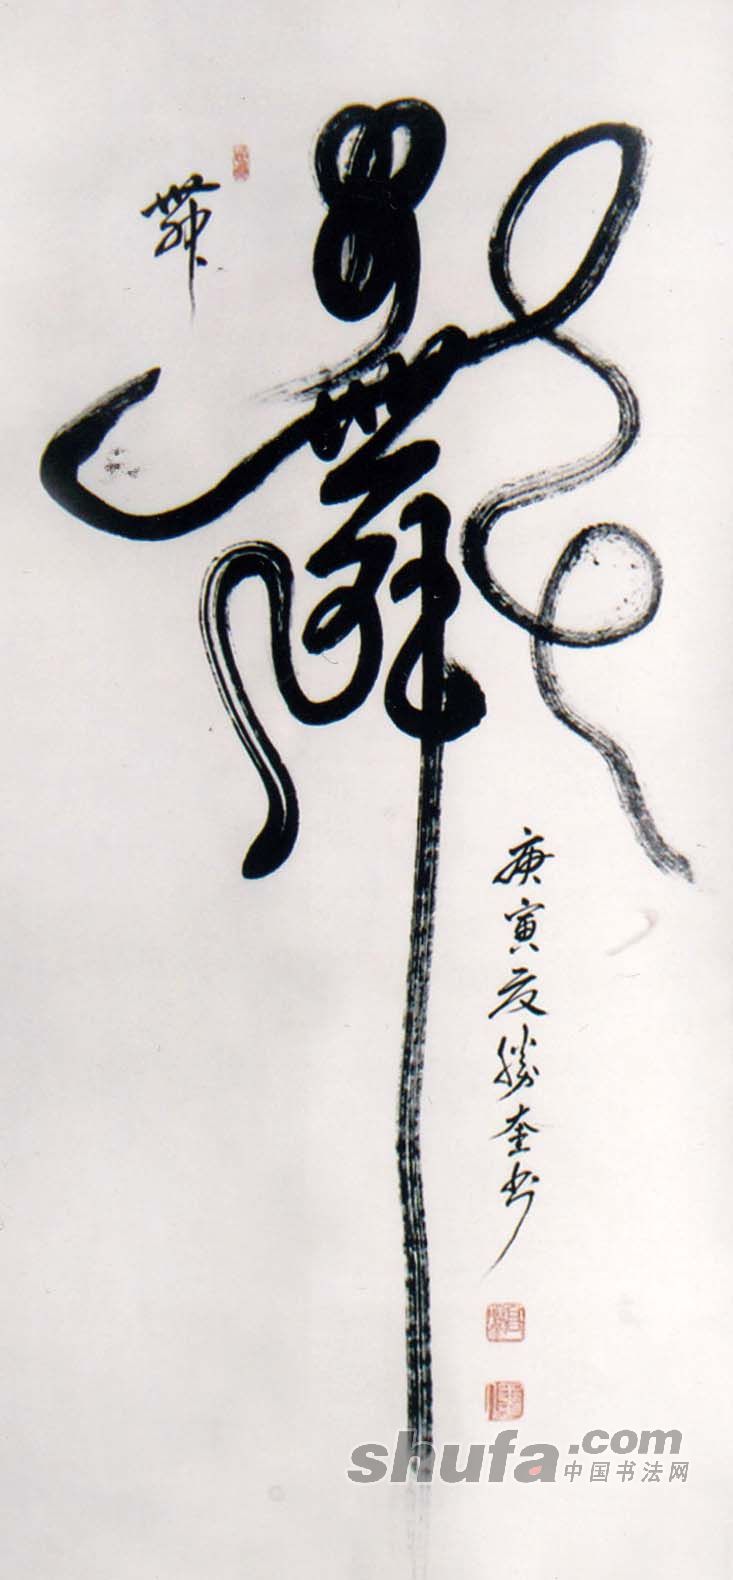 舞
舞
庚寅夏勝奎书
shufa.com
中国书法网